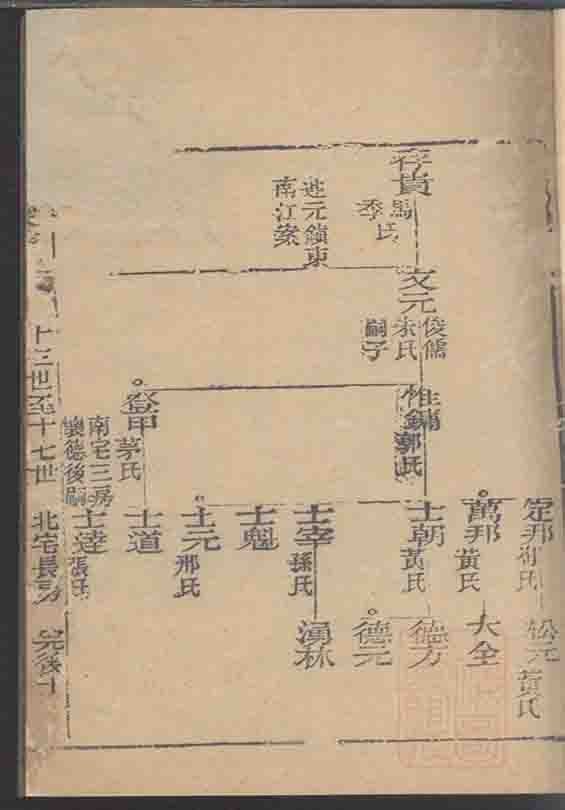 存貴
馬氏
季氏
遊元鎮東
南江案
文元
俊儒
朱氏
嗣子
惟鏞
郭氏
登甲
茅氏
南宅三房
懷德後嗣
定邦
萬邦
黃氏
士朝
黃氏
士宰
孫氏
士魁
士元
邢氏
士道
士達
張氏
松元
黃氏
大全
德方
德元
湧林
十三世至十七世
北宅長房
元後十